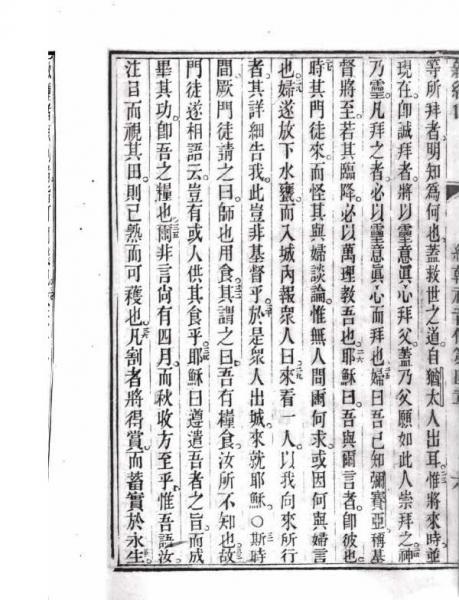 等所拜者明知為何也蓋救世之道自猶太人出耳惟將來時並
現在卽誠拜者將以靈意眞心拜父蓋乃父願如此人崇拜之神
乃靈凡拜之者必以靈意眞心而拜也婦曰吾已知彌賽亞稱基
督將至若其臨降必以萬理教吾也耶穌曰吾與爾言者卽彼也
時其門徒來而怪其與婦談論惟無人問爾何求或因何與婦言
也婦遂放下水甕而入城內報衆人曰來看一人以我向來所行
者其詳細告我此豈非基督乎於是衆人出城來就耶穌〇斯時
間厥門徒請之曰師也用食其謂之曰吾有糧食汝所不知也故
門徒遂相語云豈有或人供其食乎耶穌曰遵遣吾者之旨而成
畢其功卽吾之糧也爾非言尙有四月而秋收方至乎惟吾語汝
注目而視其田則已熟而可穫也凡割者將得賞而蓄實於永生